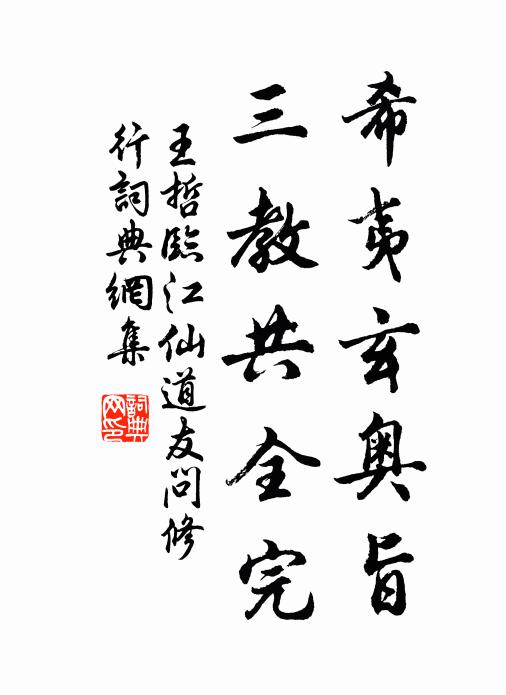 希夷玄奧旨
三教共全完
王哲臨江仙道友問修
行詞典網集
詞典網印